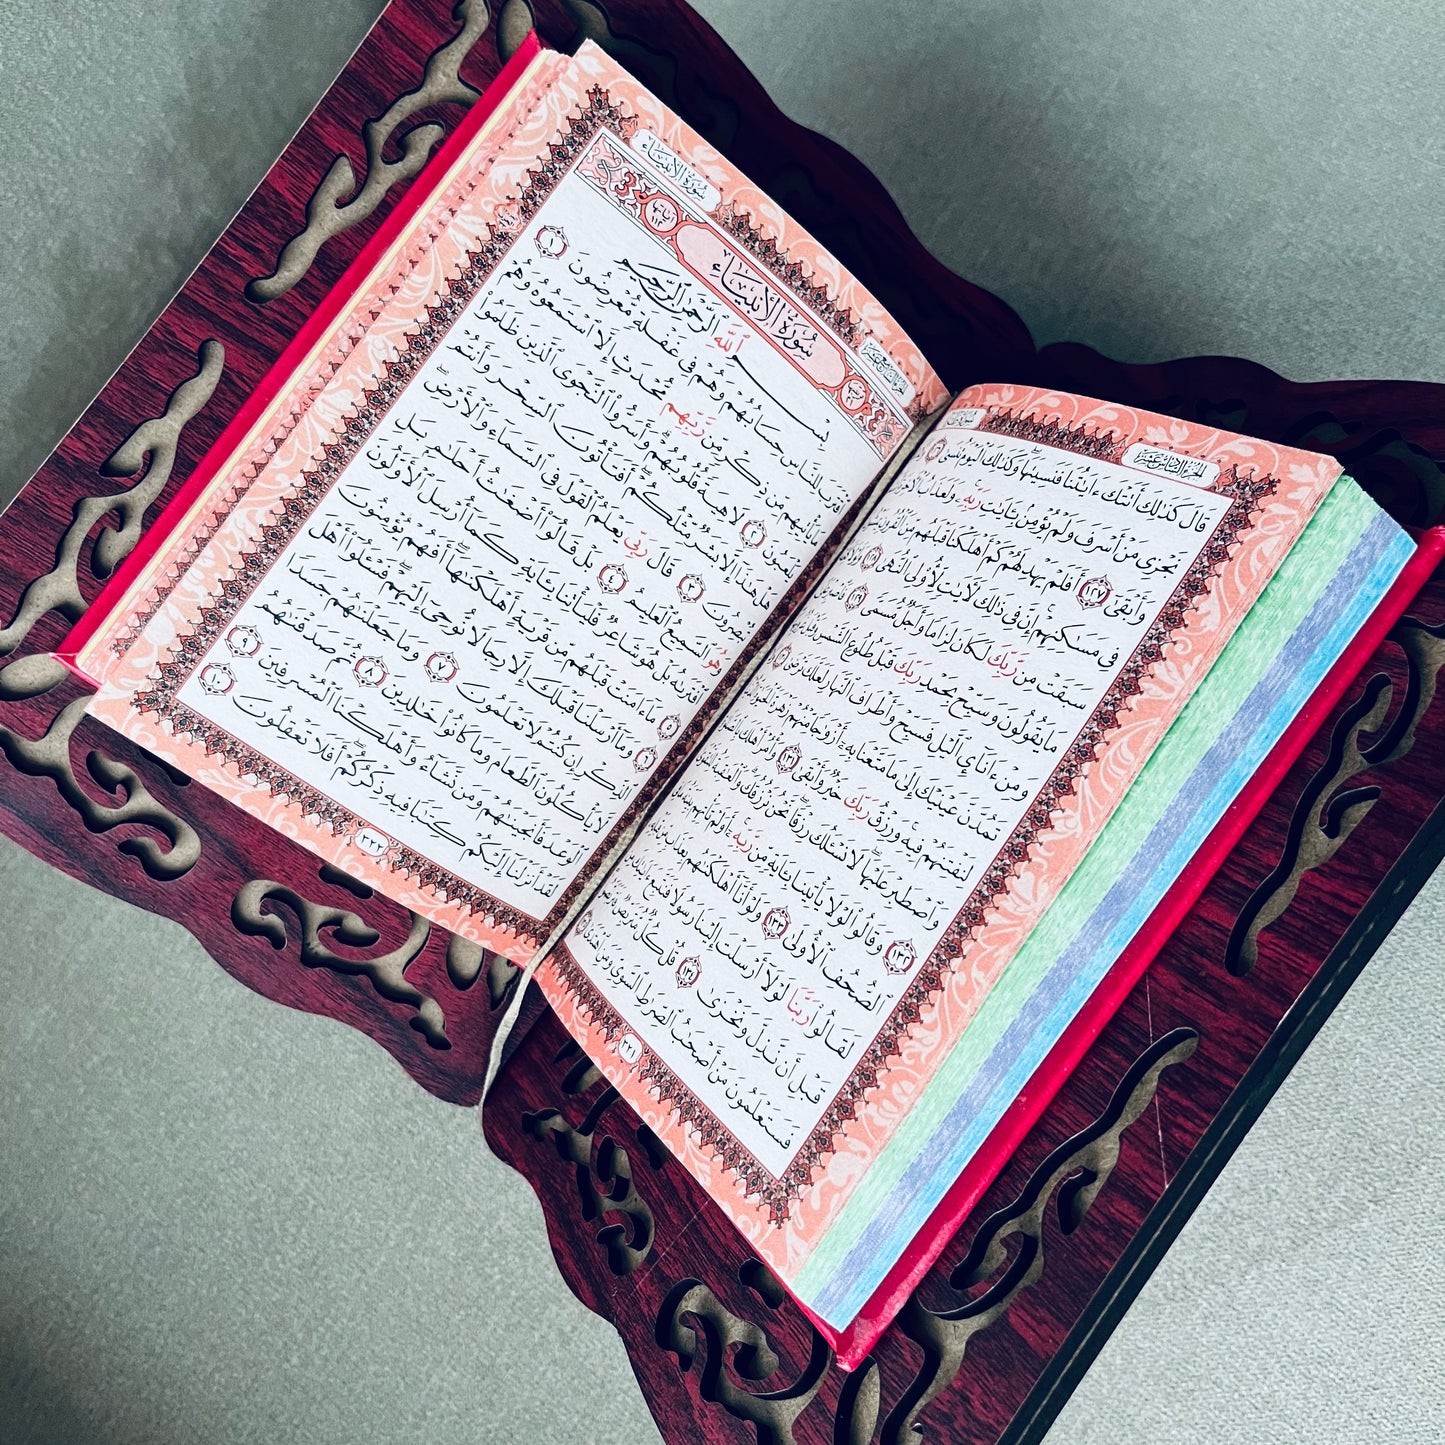 الجزء السادس عشر
قَالَ كَذَٰلِكَ أَتَتْكَ ءَايَٰتُنَا فَنَسِيتَهَا وَكَذَٰلِكَ ٱلْيَوْمَ تُنسَىٰ ١٢٦
نَجْزِى مَنْ أَسْرَفَ وَلَمْ يُؤْمِنۢ بِـَٔايَٰتِ رَبِّهِۦ وَلَعَذَابُ ٱلْأٓخِرَةِ
وَأَبْقَىٰٓ ١٢٧ أَفَلَمْ يَهْدِ لَهُمْ كَمْ أَهْلَكْنَا قَبْلَهُم مِّنَ ٱلْقُرُونِ
فِى مَسَٰكِنِهِمْ إِنَّ فِى ذَٰلِكَ لَأٓيَٰتٍ لِّأُو۟لِى ٱلنُّهَىٰ ١٢٨ وَلَوْلَا
سَبَقَتْ مِن رَّبِّكَ لَكَانَ لِزَامًا وَأَجَلٌ مُّسَمًّى ١٢٩ فَٱصْبِرْ عَلَىٰ
مَا يَقُولُونَ وَسَبِّحْ بِحَمْدِ رَبِّكَ قَبْلَ طُلُوعِ ٱلشَّمْسِ وَقَبْلَ
وَمِنْ ءَانَآئِ ٱلَّيْلِ فَسَبِّحْ وَأَطْرَافَ ٱلنَّهَارِ لَعَلَّكَ تَرْضَىٰ
تَمُدَّنَّ عَيْنَيْكَ إِلَىٰ مَا مَتَّعْنَا بِهِۦٓ أَزْوَٰجًا مِّنْهُمْ زَهْرَةَ ٱلْحَيَوٰةِ
لِنَفْتِنَهُمْ فِيهِ وَرِزْقُ رَبِّكَ خَيْرٌ وَأَبْقَىٰ ١٣١ وَأْمُرْ أَهْلَكَ
وَٱصْطَبِرْ عَلَيْهَا لَا نَسْـَٔلُكَ رِزْقًا نَّحْنُ نَرْزُقُكَ وَٱلْعَٰقِبَةُ لِلتَّقْوَىٰ
١٣٢ وَقَالُوا۟ لَوْلَا يَأْتِينَا بِـَٔايَةٍ مِّن رَّبِّهِۦٓ أَوَلَمْ تَأْتِهِم بَيِّنَةُ
ٱلصُّحُفِ ٱلْأُولَىٰ ١٣٣ وَلَوْ أَنَّآ أَهْلَكْنَٰهُم بِعَذَابٍ مِّن قَبْلِهِۦ
لَقَالُوا۟ رَبَّنَا لَوْلَآ أَرْسَلْتَ إِلَيْنَا رَسُولًا فَنَتَّبِعَ ءَايَٰتِكَ
قَبْلِ أَن نَّذِلَّ وَنَخْزَىٰ ١٣٤ قُلْ كُلٌّ مُّتَرَبِّصٌ فَتَرَبَّصُوا۟
فَسَتَعْلَمُونَ مَنْ أَصْحَٰبُ ٱلصِّرَٰطِ ٱلسَّوِىِّ وَمَنِ ٱهْتَدَىٰ
٣٢١
الجزء السابع عشر
سُورَةُ الأَنبيَاء
سُورَةُ الأَنبيَاءِ
آياتها ١١٢
بِسْمِ ٱللَّهِ ٱلرَّحْمَٰنِ ٱلرَّحِيمِ
ٱقْتَرَبَ لِلنَّاسِ حِسَابُهُمْ وَهُمْ فِى غَفْلَةٍ مُّعْرِضُونَ ١
مَا يَأْتِيهِم مِّن ذِكْرٍ مِّن رَّبِّهِم مُّحْدَثٍ إِلَّا ٱسْتَمَعُوهُ وَهُمْ
يَلْعَبُونَ ٢ لَاهِيَةً قُلُوبُهُمْ وَأَسَرُّوا۟ ٱلنَّجْوَى ٱلَّذِينَ ظَلَمُوا۟
هَلْ هَٰذَآ إِلَّا بَشَرٌ مِّثْلُكُمْ أَفَتَأْتُونَ ٱلسِّحْرَ وَأَنتُمْ
تُبْصِرُونَ ٣ قَالَ رَبِّى يَعْلَمُ ٱلْقَوْلَ فِى ٱلسَّمَآءِ وَٱلْأَرْضِ
وَهُوَ ٱلسَّمِيعُ ٱلْعَلِيمُ ٤ بَلْ قَالُوٓا۟ أَضْغَٰثُ أَحْلَٰمٍۭ بَلِ
ٱفْتَرَىٰهُ بَلْ هُوَ شَاعِرٌ فَلْيَأْتِنَا بِـَٔايَةٍ كَمَآ أُرْسِلَ ٱلْأَوَّلُونَ
٥ مَآ ءَامَنَتْ قَبْلَهُم مِّن قَرْيَةٍ أَهْلَكْنَٰهَآ أَفَهُمْ يُؤْمِنُونَ
٦ وَمَآ أَرْسَلْنَا قَبْلَكَ إِلَّا رِجَالًا نُّوحِىٓ إِلَيْهِمْ فَسْـَٔلُوٓا۟ أَهْلَ
ٱلذِّكْرِ إِن كُنتُمْ لَا تَعْلَمُونَ ٧ وَمَا جَعَلْنَٰهُمْ جَسَدًا
لَّا يَأْكُلُونَ ٱلطَّعَامَ وَمَا كَانُوا۟ خَٰلِدِينَ ٨ ثُمَّ صَدَقْنَٰهُمُ
ٱلْوَعْدَ فَأَنجَيْنَٰهُمْ وَمَن نَّشَآءُ وَأَهْلَكْنَا ٱلْمُسْرِفِينَ ٩
لَقَدْ أَنزَلْنَآ إِلَيْكُمْ كِتَٰبًا فِيهِ ذِكْرُكُمْ أَفَلَا تَعْقِلُونَ ١٠
٣٢٢